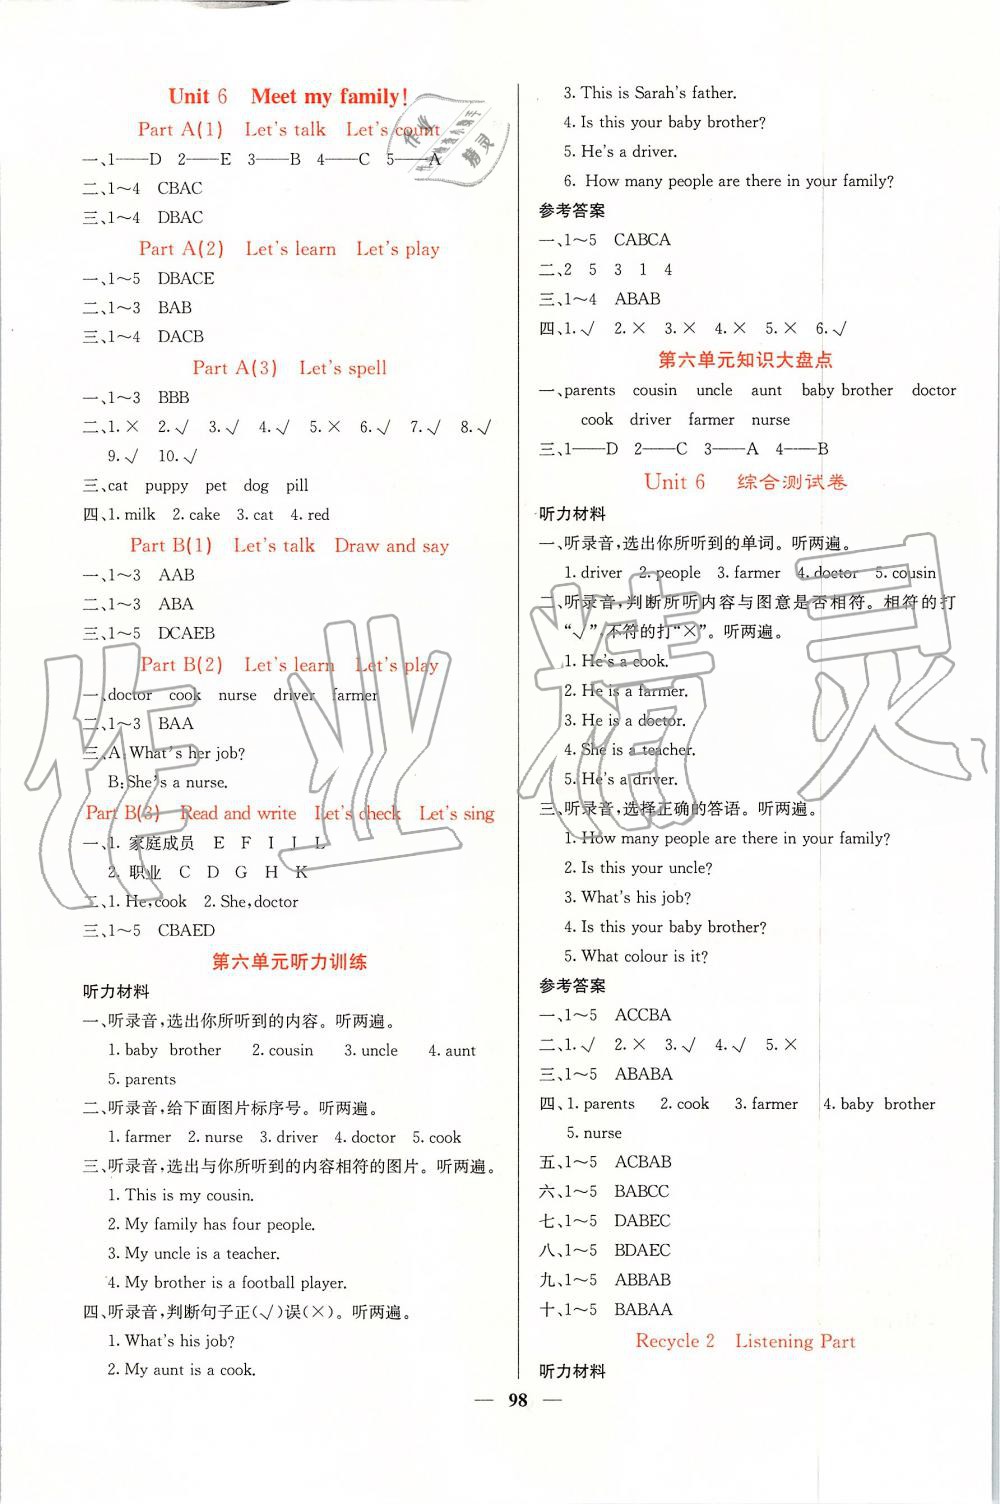 Unit 6 Meet my family!
Part A(1) Let's talk Let's count
一、1——D 2——E 3——B 4——C 5——A
二、1～4 CBAC
三、1～4 DBAC
Part A(2) Let's learn Let's play
一、1～5 DBACE
二、1～3 BAB
三、1～4 DACB
Part A(3) Let's spell
一、1～3 BBB
二、1.× 2.√ 3.√ 4.√ 5.× 6.√ 7.√ 8.√
9.√ 10.√
三、cat puppy pet dog pill
四、1. milk 2. cake 3. cat 4. red
Part B(1) Let's talk Draw and say
一、1～3 AAB
二、1～3 ABA
三、1～5 DCAEB
Part B(2) Let's learn Let's play
一、doctor cook nurse driver farmer
二、1～3 BAA
三、A: What's her job?
B: She's a nurse.
Part B(3) Read and write Let's check Let's sing
一、1. 家庭成员 E F I J L
2. 职业 C D G H K
二、1. He, cook 2. She, doctor
三、1～5 CBAED
第六单元听力训练
听力材料
一、听录音,选出你所听到的内容。听两遍。
1. baby brother 2. cousin 3. uncle 4. aunt
5. parents
二、听录音,给下面图片标序号。听两遍。
1. farmer 2. nurse 3. driver 4. doctor 5. cook
三、听录音,选出与你所听到的内容相符的图片。听两遍。
1. This is my cousin.
2. My family has four people.
3. My uncle is a teacher.
4. My brother is a football player.
四、听录音,判断句子正(√)误(×)。听两遍。
1. What's his job?
2. My aunt is a cook.
3. This is Sarah's father.
4. Is this your baby brother?
5. He's a driver.
6. How many people are there in your family?
参考答案
一、1～5 CABCA
二、2 5 3 1 4
三、1～4 ABAB
四、1.√ 2.× 3.× 4.× 5.× 6.√
第六单元知识大盘点
一、parents cousin uncle aunt baby brother doctor
cook driver farmer nurse
三、1——D 2——C 3——A 4——B
Unit 6 综合测试卷
听力材料
一、听录音,选出你所听到的单词。听两遍。
1. driver 2. people 3. farmer 4. doctor 5. cousin
二、听录音,判断所听内容与图意是否相符。相符的打
“√”,不符的打“×”。听两遍。
1. He's a cook.
2. He is a farmer.
3. He is a doctor.
4. She is a teacher.
5. He's a driver.
三、听录音,选择正确的答语。听两遍。
1. How many people are there in your family?
2. Is this your uncle?
3. What's his job?
4. Is this your baby brother?
5. What colour is it?
参考答案
一、1～5 ACCBA
二、1.√ 2.× 3.√ 4.√ 5.×
三、1～5 ABABA
四、1. parents 2. cook 3. farmer 4. baby brother
5. nurse
五、1～5 ACBAB
六、1～5 BABCC
七、1～5 DABEC
八、1～5 BDAEC
九、1～5 ABBAB
十、1～5 BABAA
Recycle 2 Listening Part
听力材料
— 98 —
作业精灵